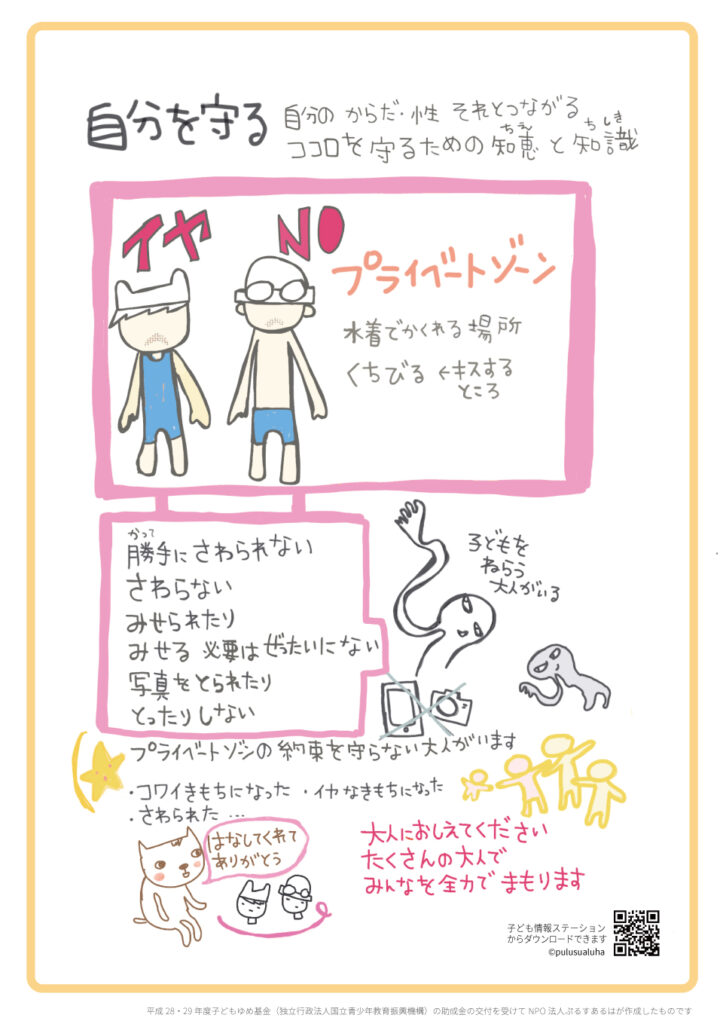 自分を守る
自分の からだ・性 それとつながる
ココロを守るための知恵と知識
ちえ
ちしき
イヤ
NO
プライベートゾーン
水着でかくれる場所
くちびる ←キスする
ところ
かって
勝手にさわられない
さわらない
みせられたり
みせる 必要はぜったいにない
写真をとられたり
とったりしない
子どもを
ねらう
大人がいる
プライベートゾーンの約束を守らない大人がいます
・コワイきもちになった ・イヤなきもちになった
・さわられた …
はなしてくれて
ありがとう
大人におしえてください
たくさんの大人で
みんなを全力でまもります
子ども情報ステーション
からダウンロードできます
©pulusualuha
平成28・29年度子どもゆめ基金（独立行政法人国立青少年教育振興機構）の助成金の交付を受けてNPO法人ぷるすあるはが作成したものです